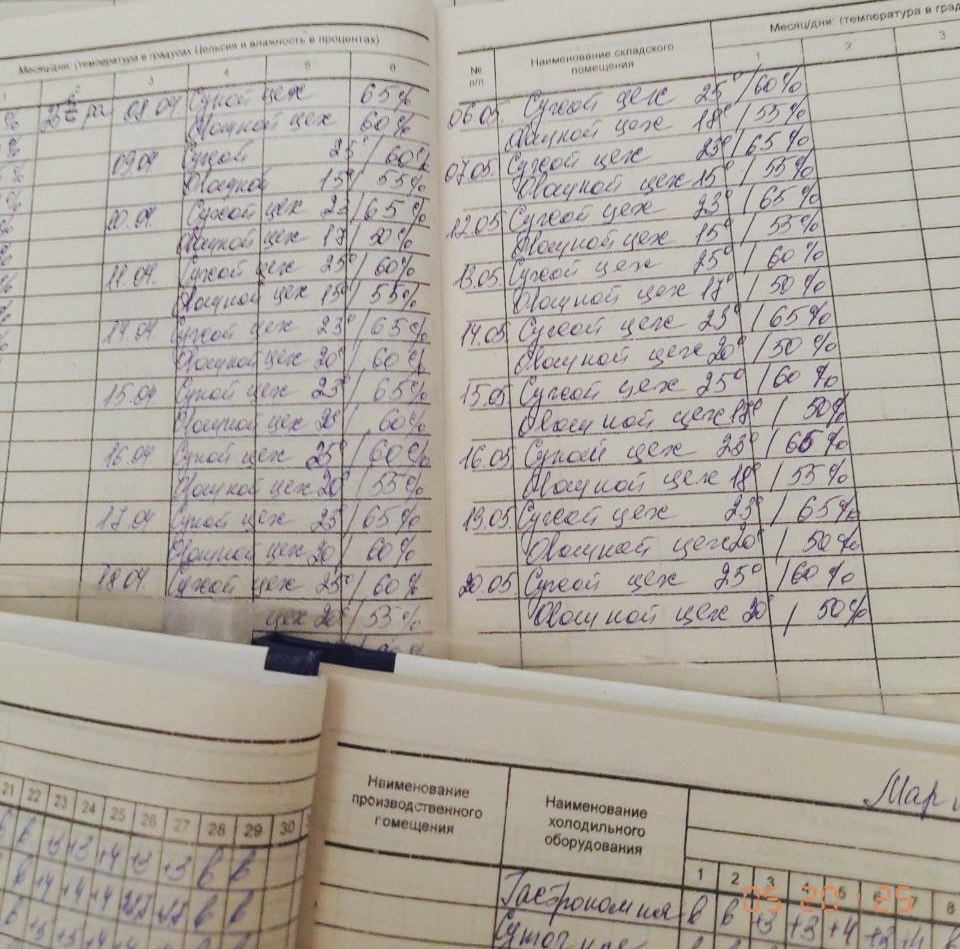 Месяц/дни: (температура в градусах Цельсия и влажность в процентах)
3 4 5 6
08.04 Сухой цех 65%
Овощной цех 60%
09.04 Сухой 25° / 60%
Овощной 15° / 55%
10.04 Сухой цех 23 / 65%
Овощной цех 17 / 50%
11.04. Сухой цех 25° / 60%
Овощной цех 15° / 55%
14.04 Сухой цех 23° / 65%
Овощной цех 20° / 60%
15.04 Сухой цех 23° / 65%
Овощной цех 20° / 60%
16.04 Сухой цех 25° / 60%
Овощной цех 20° / 55%
17.04 Сухой цех 25 / 65%
Овощной цех 20 / 60%
18.04. Сухой цех 25° / 60%
цех 20° / 55%
Месяц/дни: (температура в град
№ п/п
Наименование складского
помещения
1 2 3
06.05 Сухой цех 25° / 60%
Овощной цех 18° / 55%
07.05 Сухой цех 25° / 65%
Овощной цех 15° / 55%
12.05 Сухой цех 23° / 65%
Овощной цех 15° / 55%
13.05 Сухой цех 25° / 60%
Овощной цех 17° / 50%
14.05 Сухой цех 23° / 65%
Овощной цех 20° / 50%
15.05 Сухой цех 25° / 60%
Овощной цех 18° / 50%
16.05 Сухой цех 25° / 65%
Овощной цех 18° / 55%
19.05 Сухой цех 23° / 65%
Овощной цех 20° / 50%
20.05 Сухой цех 25° / 60%
Овощной цех 20° / 50%
21 22 23 24 25 26 27 28 29 30
в +3 +3 +4 +3 +3 в в
в +4 +4 +4 в в
Наименование
производственного
помещения
Наименование
холодильного
оборудования
Мар
1 2 3 4 5 6 7 8
Гастрономия в в +3 +3 +4
05 20 '25